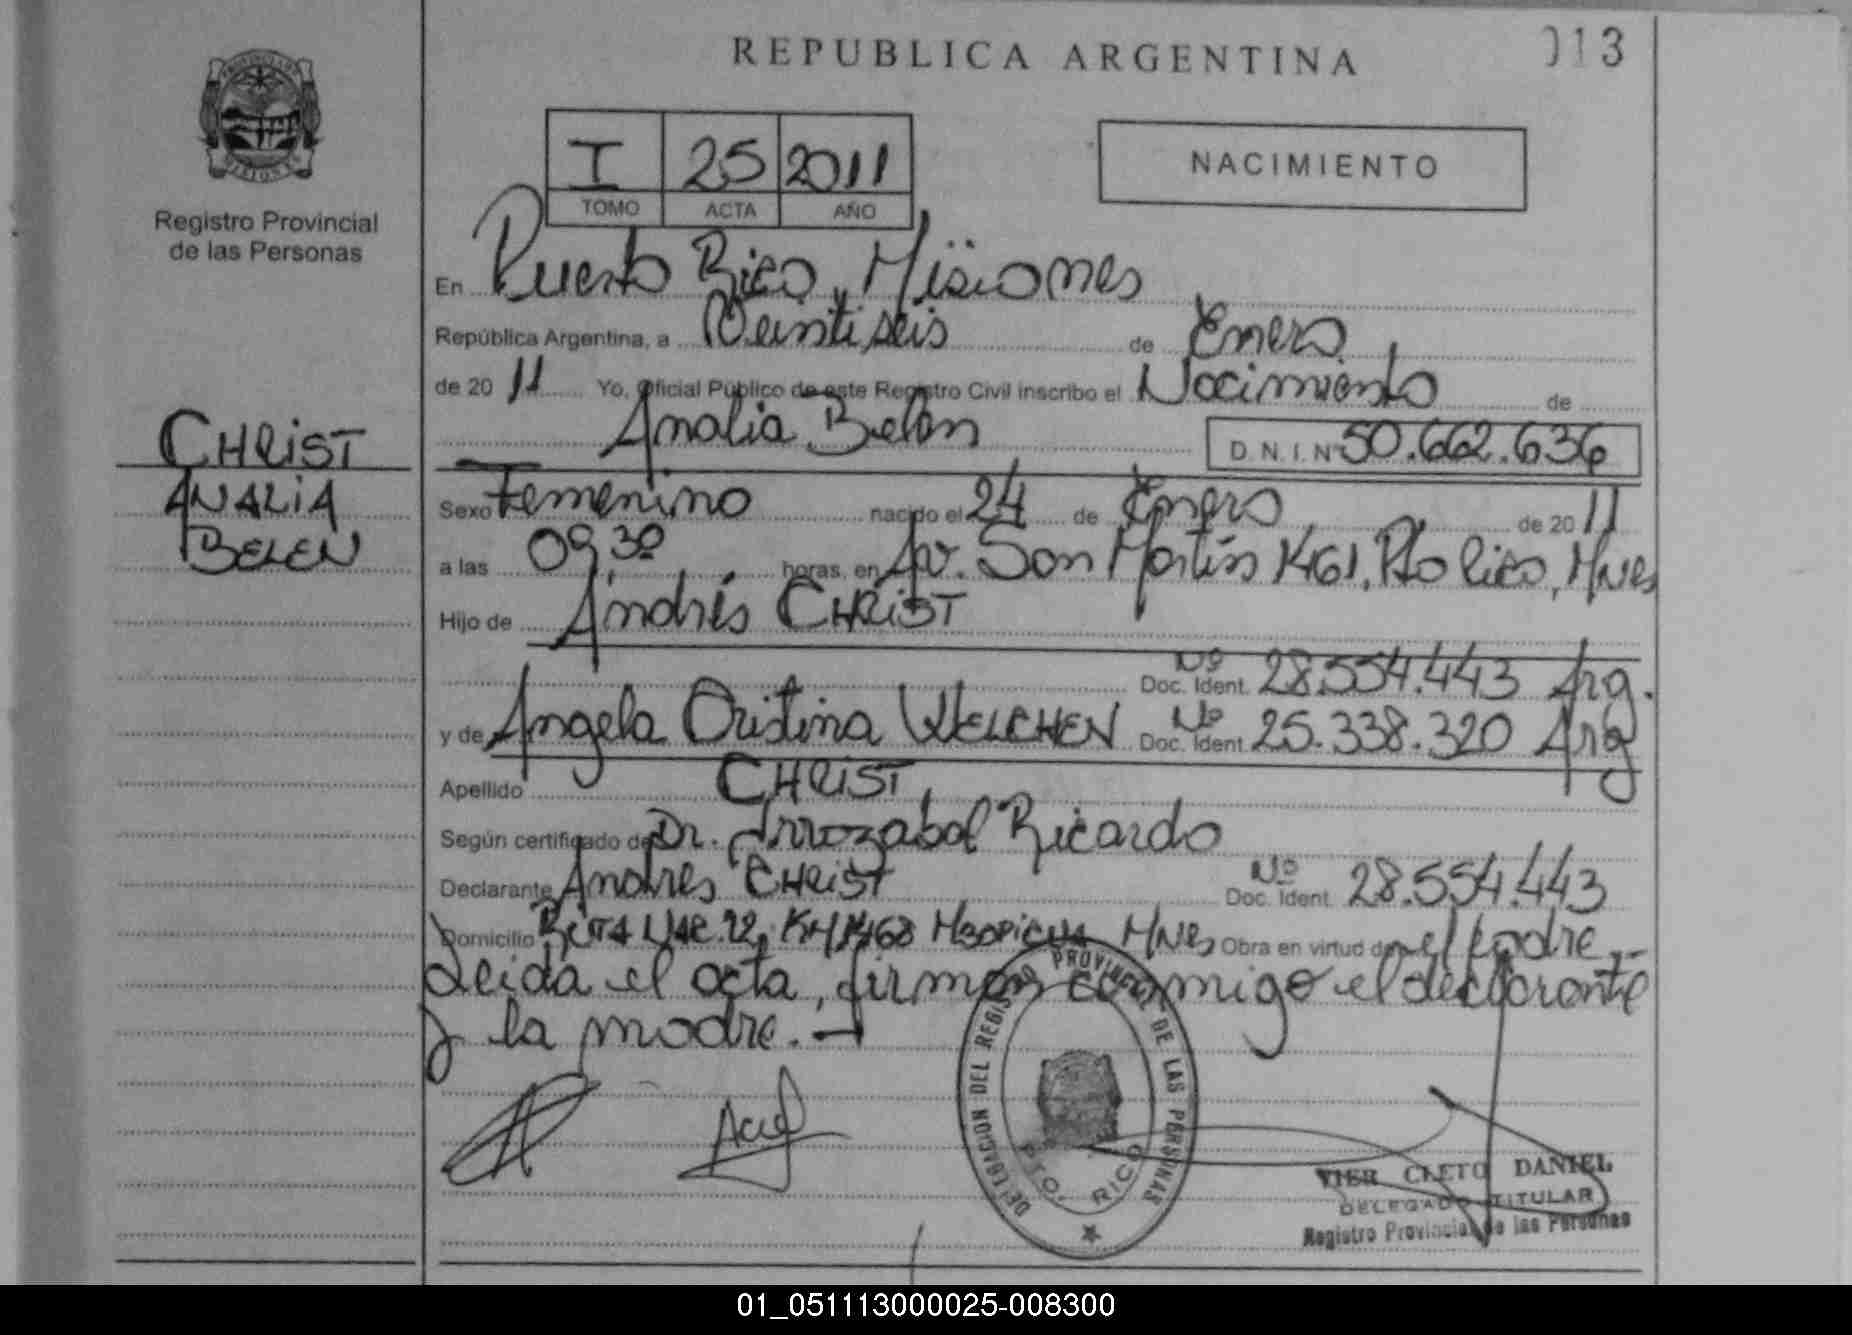 REPUBLICA ARGENTINA
013
Registro Provincial
de las Personas
I 25 2011
TOMO ACTA AÑO
NACIMIENTO
En Puerto Rico, Misiones
República Argentina, a Veintiseis de Enero
de 2011 Yo, Oficial Público de este Registro Civil inscribo el Nacimiento de
Analia Belén D.N.I.Nº 50.662.636
CHRiST
ANALiA
BELEN
Sexo Femenino nacido el 24 de Enero de 2011
a las 09,30 horas, en Av. San Martín 1461, Pto Rico, Mnes
Hijo de Andrés CHRiST
Nº
Doc. Ident. 28.554.443 Arg.
y de Angela Cristina WELCHEN Nº Doc. Ident. 25.338.320 Arg
Apellido CHRiST
Según certificado de Dr. Irrozabal Ricardo
Declarante Andrés CHRiST Nº Doc. Ident. 28.554.443
Domicilio RUTA NAC. 12, KM 1468 Mnes Obra en virtud de el padre.-
Leida el acta, firman conmigo el declarante
y la madre.-
DELEGACION DEL REGISTRO PROVINCIAL DE LAS PERSONAS
PTO. RICO
VIER CLETO DANIEL
DELEGADO TITULAR
Registro Provincial de las Personas
01_051113000025-008300